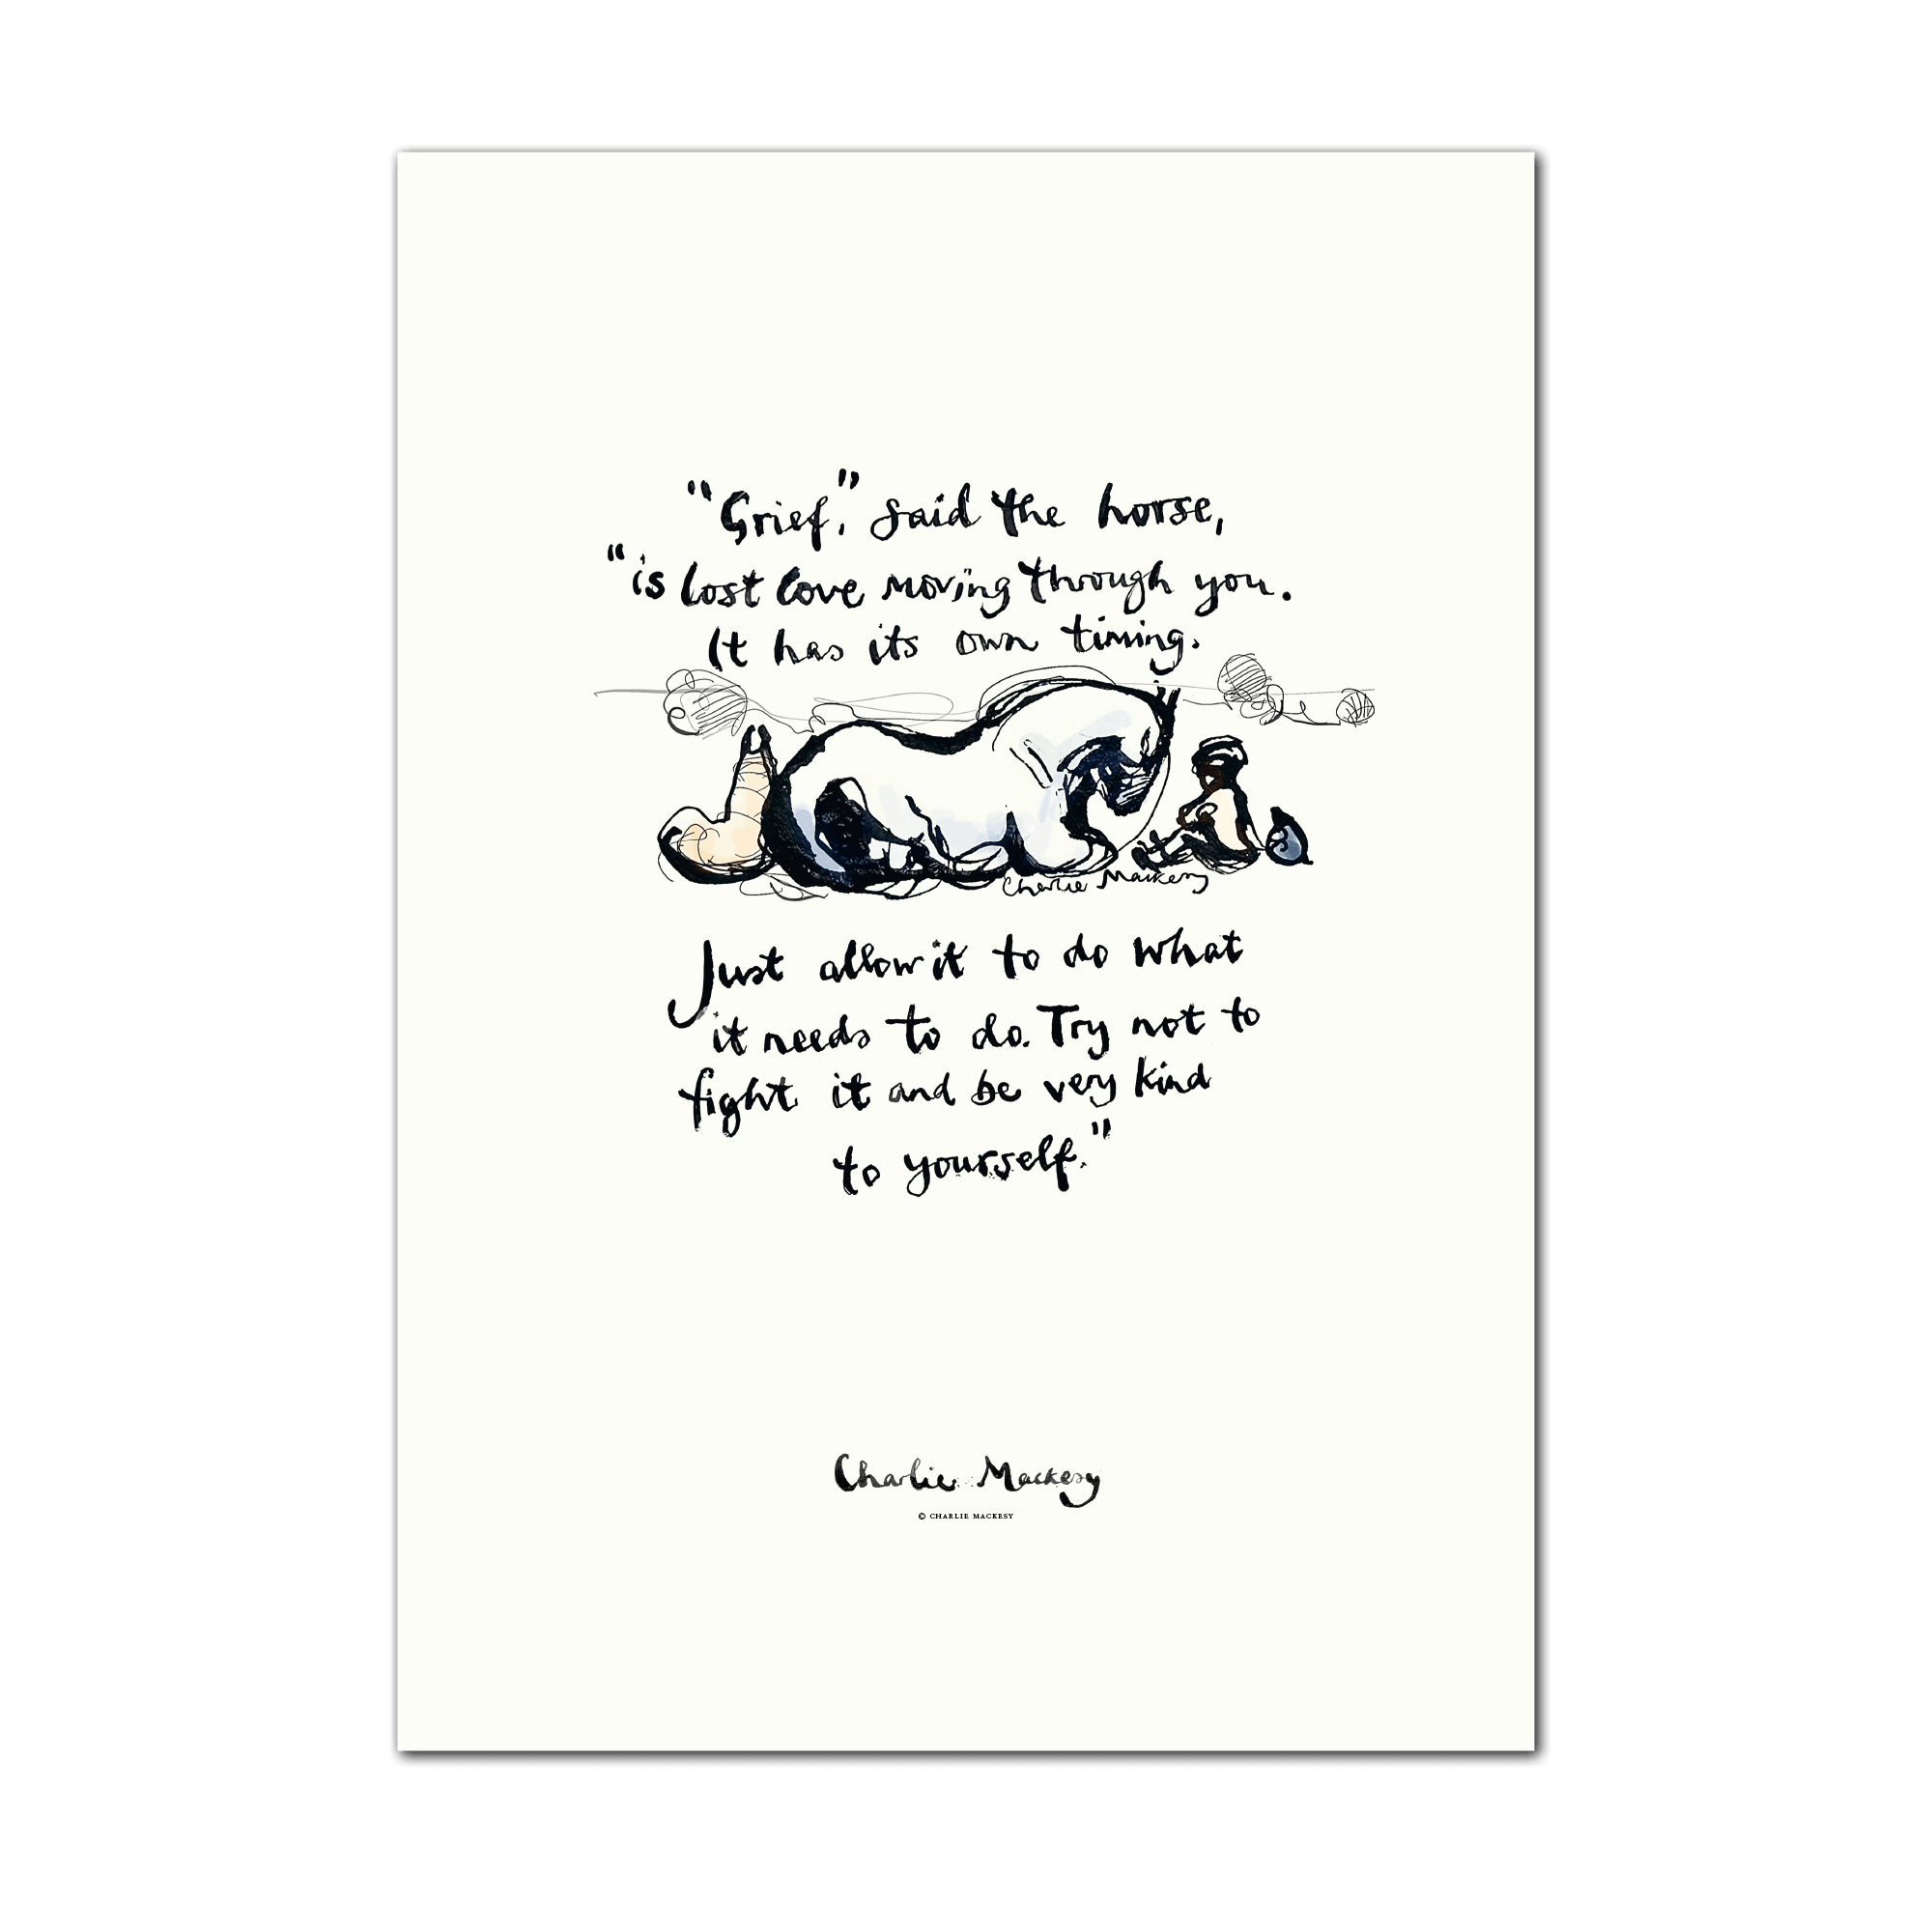 "Grief," said the horse,
"is lost love moving through you.
It has its own timing.
Charlie Mackesy
Just allow it to do what
it needs to do. Try not to
fight it and be very kind
to yourself."
Charlie Mackesy
© CHARLIE MACKESY